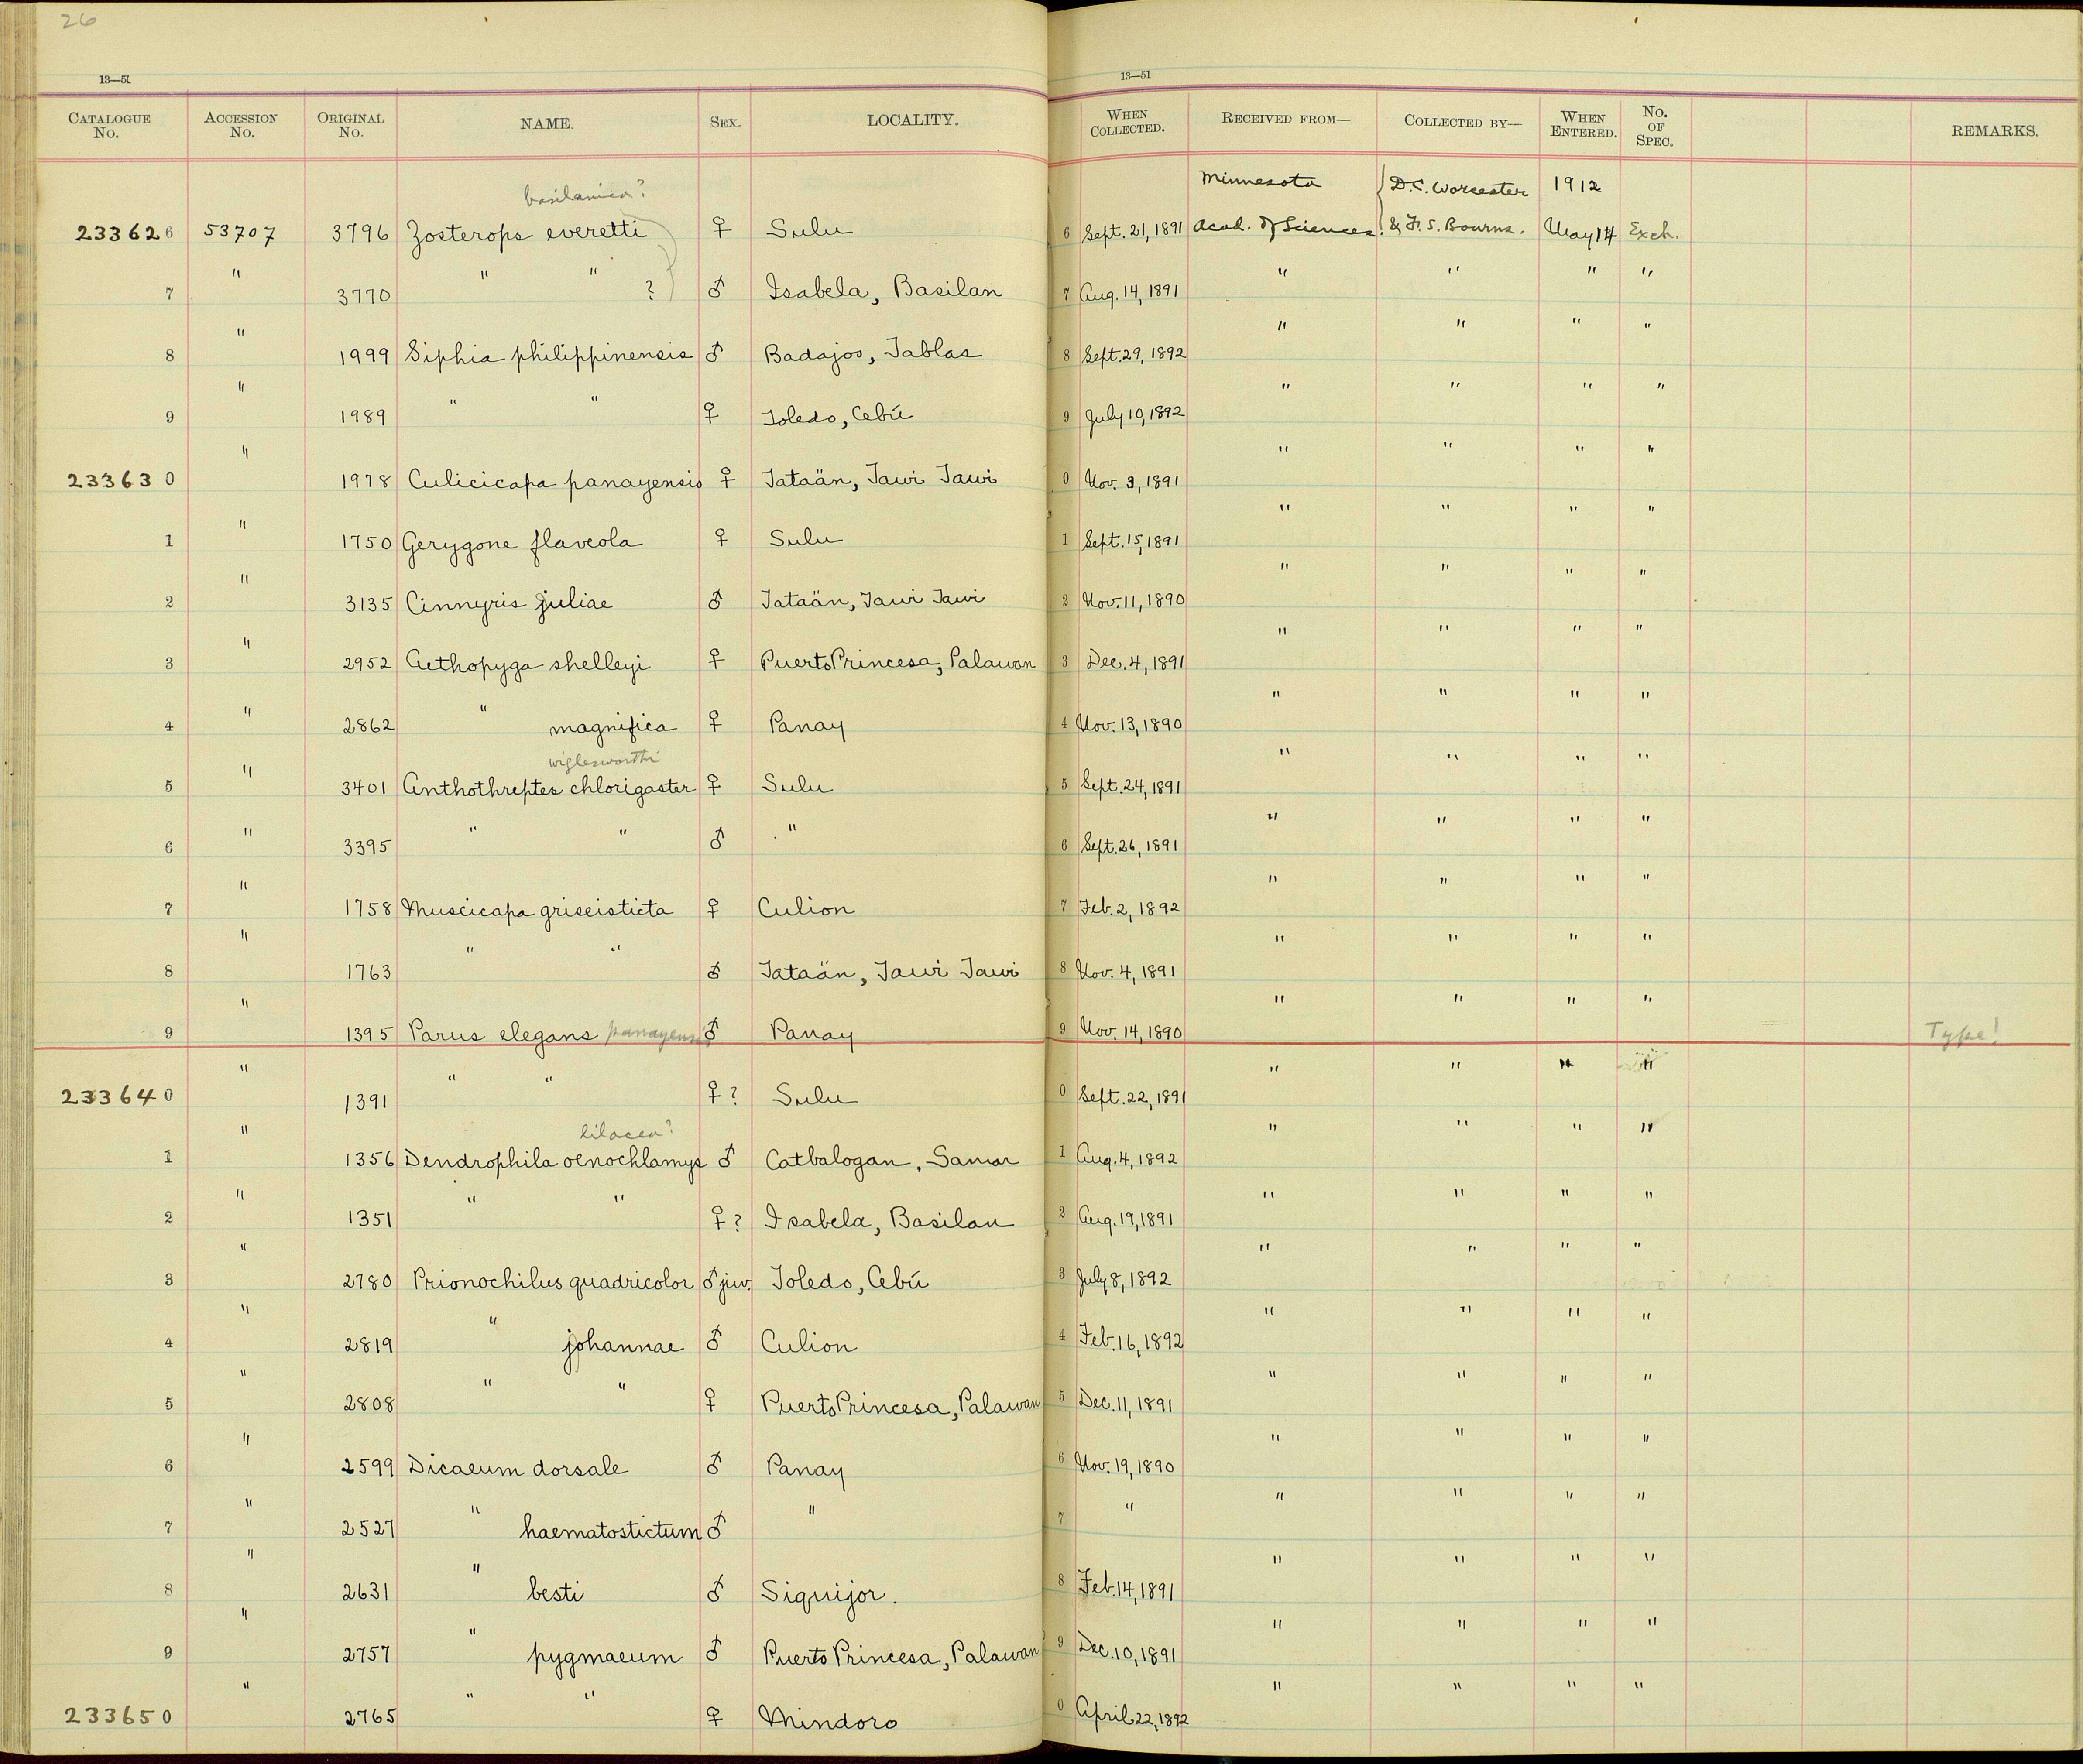 26
13—51 13—51
CATALOGUE No. ACCESSION No. ORIGINAL No. NAME. SEX. LOCALITY. WHEN COLLECTED. RECEIVED FROM— COLLECTED BY— WHEN ENTERED. No. OF SPEC. REMARKS.
basilanica? Minnesota D.C. Worcester 1912
233626 53707 3796 Zosterops everetti ♀ Sulu 6 Sept. 21, 1891 Acad. of Sciences. & F. S. Bourns. May 14 Exch.
7 " 3770 " " ? ♂ Isabela, Basilan 7 Aug. 14, 1891 " " " "
8 " 1999 Siphia philippinensis ♂ Badajos, Tablas 8 Sept. 29, 1892 " " " "
9 " 1989 " " ♀ Toledo, Cebú 9 July 10, 1892 " " " "
233630 " 1978 Culicicapa panayensis ♀ Tataän, Tawi Tawi 0 Nov. 3, 1891 " " " "
1 " 1750 Gerygone flaveola ♀ Sulu 1 Sept. 15, 1891 " " " "
2 " 3135 Cinnyris juliae ♂ Tataän, Tawi Tawi 2 Nov. 11, 1890 " " " "
3 " 2952 Aethopyga shelleyi ♀ Puerto Princesa, Palawan 3 Dec. 4, 1891 " " " "
4 " 2862 " magnifica ♀ Panay 4 Nov. 13, 1890 " " " "
wiglesworthi
5 " 3401 Anthothreptes chlorigaster ♀ Sulu 5 Sept. 24, 1891 " " " "
6 " 3395 " " ♂ " 6 Sept. 26, 1891 " " " "
7 " 1758 Muscicapa griseisticta ♀ Culion 7 Feb. 2, 1892 " " " "
8 " 1763 " " ♂ Tataän, Tawi Tawi 8 Nov. 4, 1891 " " " "
9 " 1395 Parus elegans panayensis ♂ Panay 9 Nov. 14, 1890 " " " " Type!
233640 " 1391 " " ♀? Sulu 0 Sept. 22, 1891 " " " "
lilacea?
1 " 1356 Dendrophila oenochlamys ♂ Catbalogan, Samar 1 Aug. 4, 1892 " " " "
2 " 1351 " " ♀? Isabela, Basilan 2 Aug. 19, 1891 " " " "
3 " 2780 Prionochilus quadricolor ♂ juv. Toledo, Cebú 3 July 8, 1892 " " " "
4 " 2819 " johannae ♂ Culion 4 Feb. 16, 1892 " " " "
5 " 2808 " " ♀ Puerto Princesa, Palawan 5 Dec. 11, 1891 " " " "
6 " 2599 Dicaeum dorsale ♂ Panay 6 Nov. 19, 1890 " " " "
7 " 2527 " haematostictum ♂ " 7 " " " " "
8 " 2631 " besti ♂ Siquijor. 8 Feb. 14, 1891 " " " "
9 " 2757 " pygmaeum ♂ Puerto Princesa, Palawan 9 Dec. 10, 1891 " " " "
233650 " 2765 " " ♀ Mindoro 0 April 22, 1892 " " " "